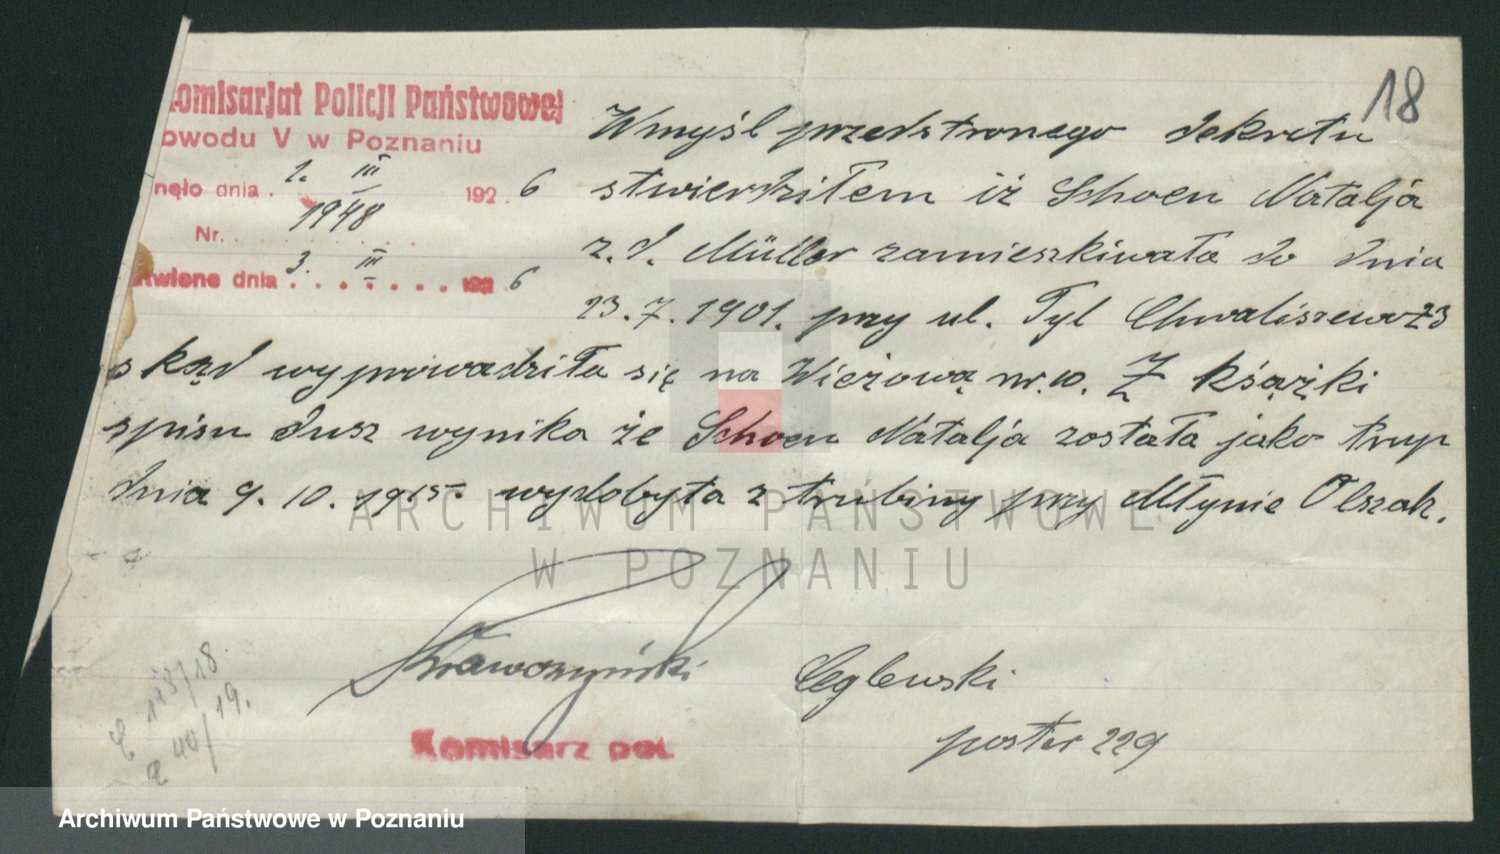 18
Komisarjat Policji Państwowej
owodu V w Poznaniu
nęło dnia . 2. III 192 . 6
Nr. . 1948
twione dnia 3. III 192 6
Wmyśl przedstronego dekretu
stwierdziłem iż Schoen Natalja
z. d. Müller zamieszkiwała do dnia
23.7.1901. przy ul. Tyl Chwaliszewa 23
skąd wyprowadziła się na Wieżową nr. 10. Z książki
spisu dusz wynika że Schoen Natalja została jako trup
dnia 9. 10. 1915. wydobyta z trubiny przy Młynie Olszak.
ARCHIWUM PAŃSTWOWE
W POZNANIU
Ceglewski
Komisarz pol.
poster 229
118/18.
40/19.
Archiwum Państwowe w Poznaniu